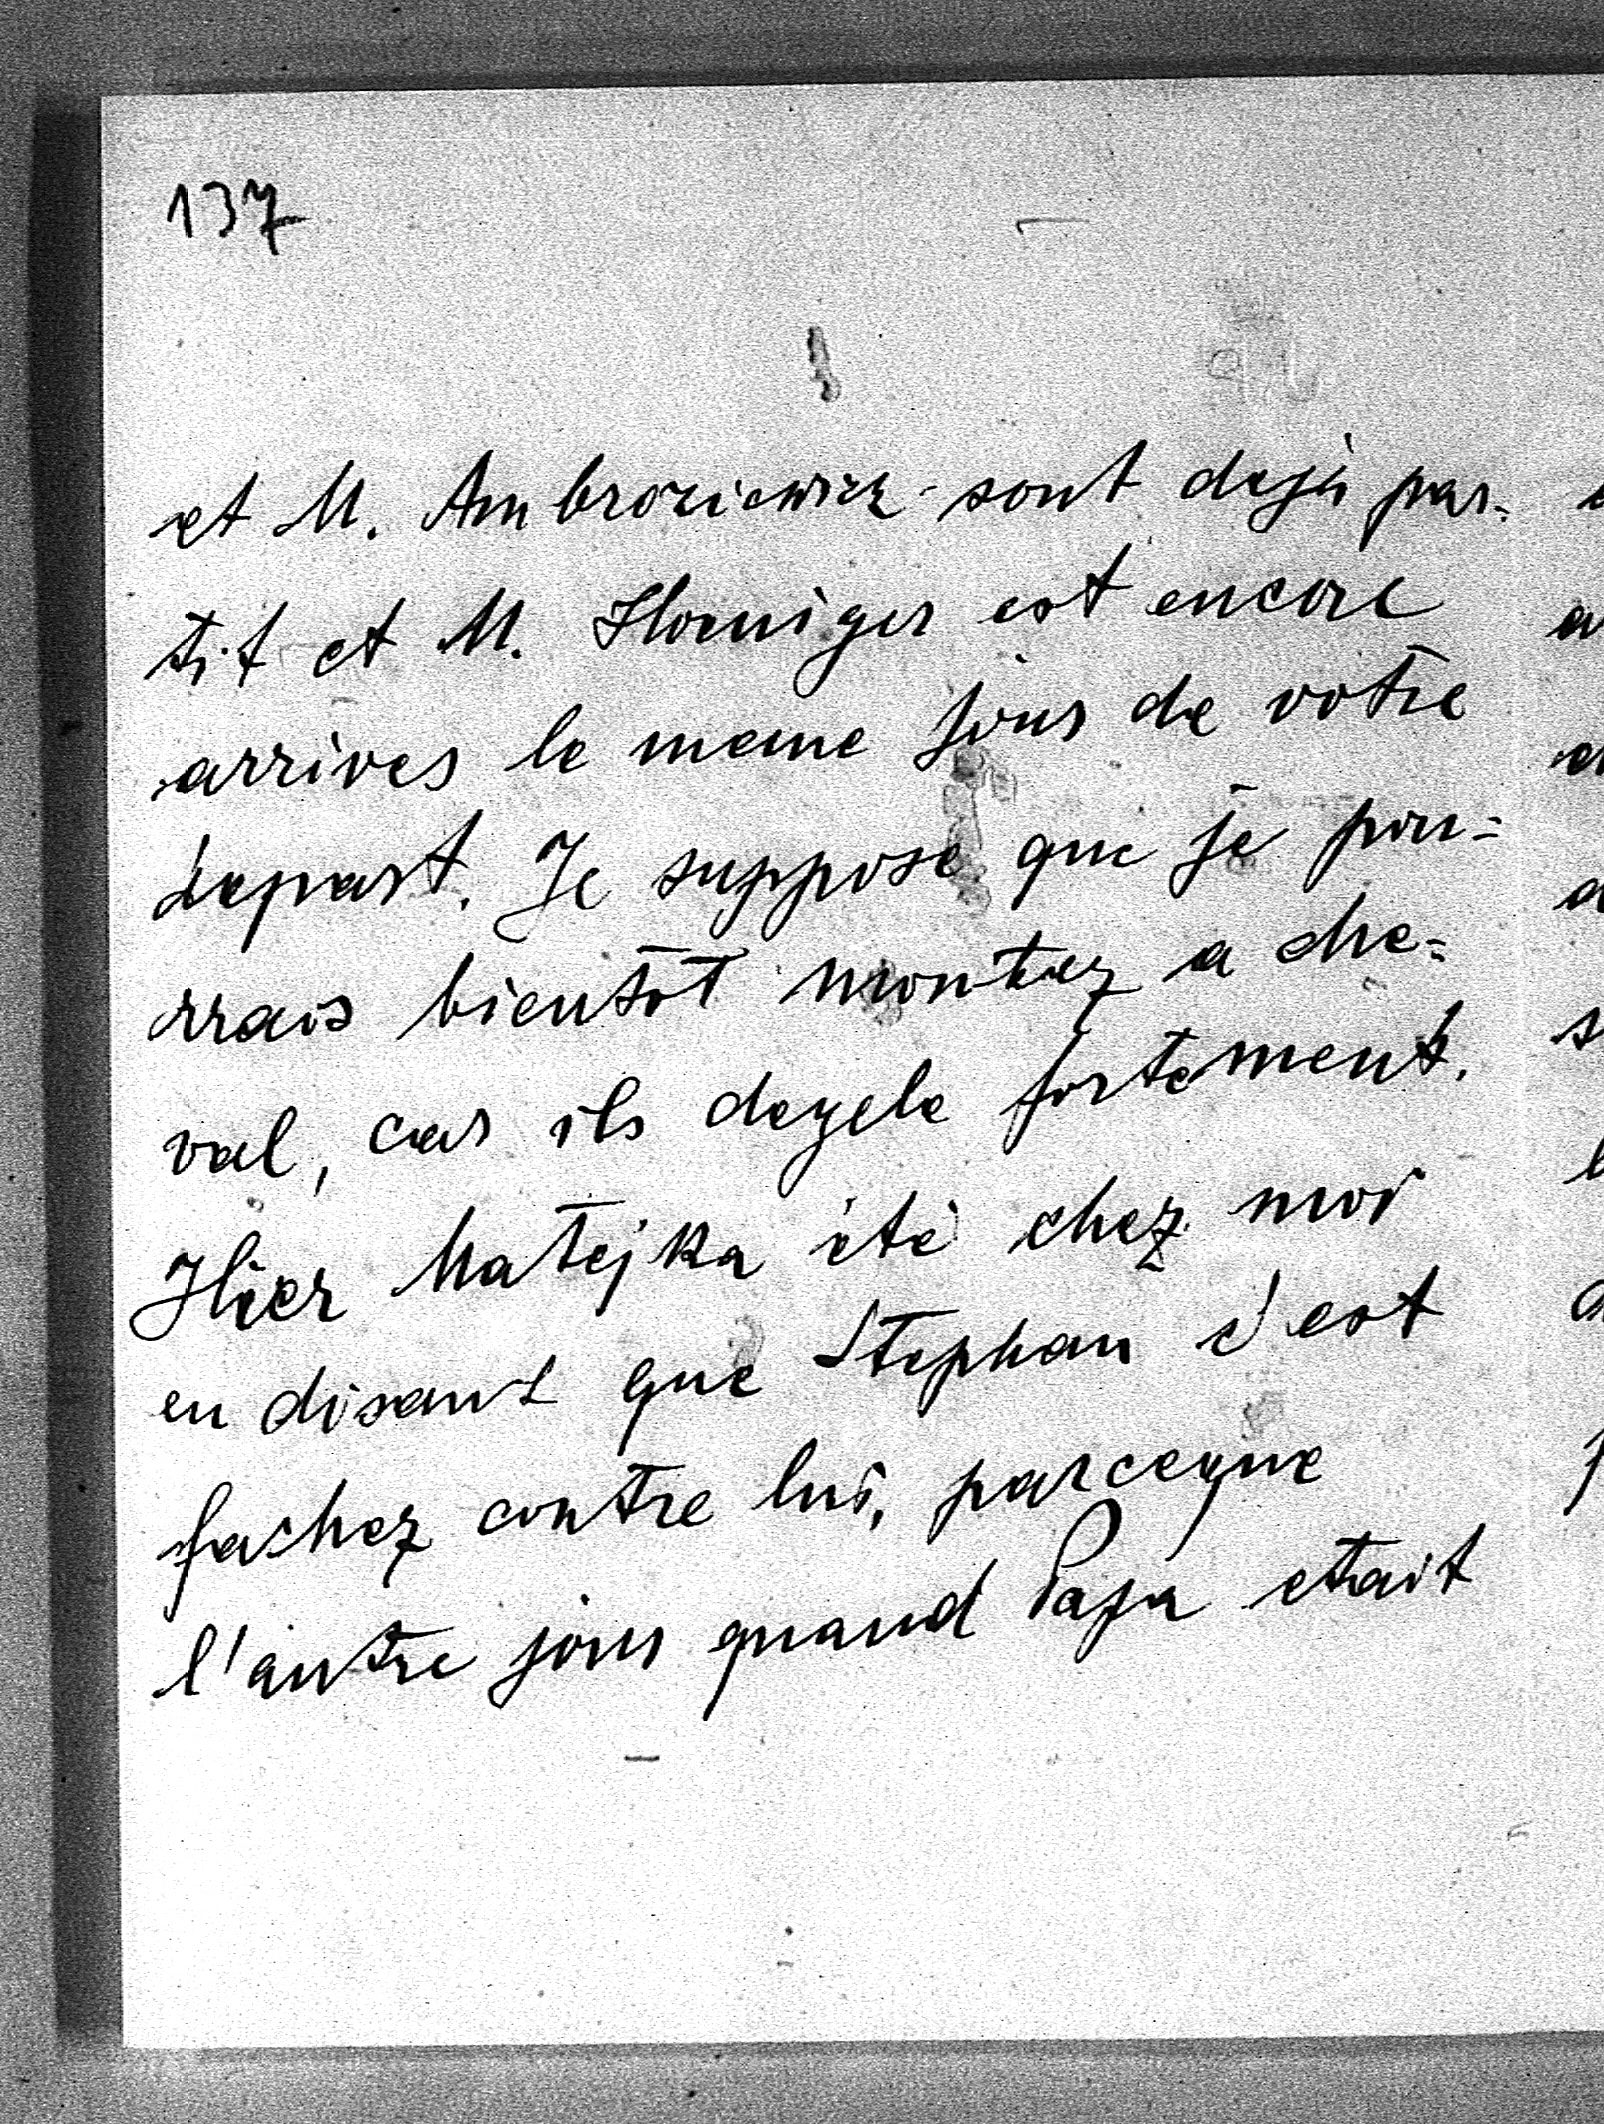 137
et M. Ambroziewicz sont dejà par-
tit et M. Hoeniger est encore
arrives le meme jour de votre
depart. Je suppose que je pou=
rrais bientôt montez a che=
val, car ils degele fortement.
Hier Matejka été chez moi
en disant que Stephan c'est
fachez contre lui, parceque
l'autre jour quand Papa etait